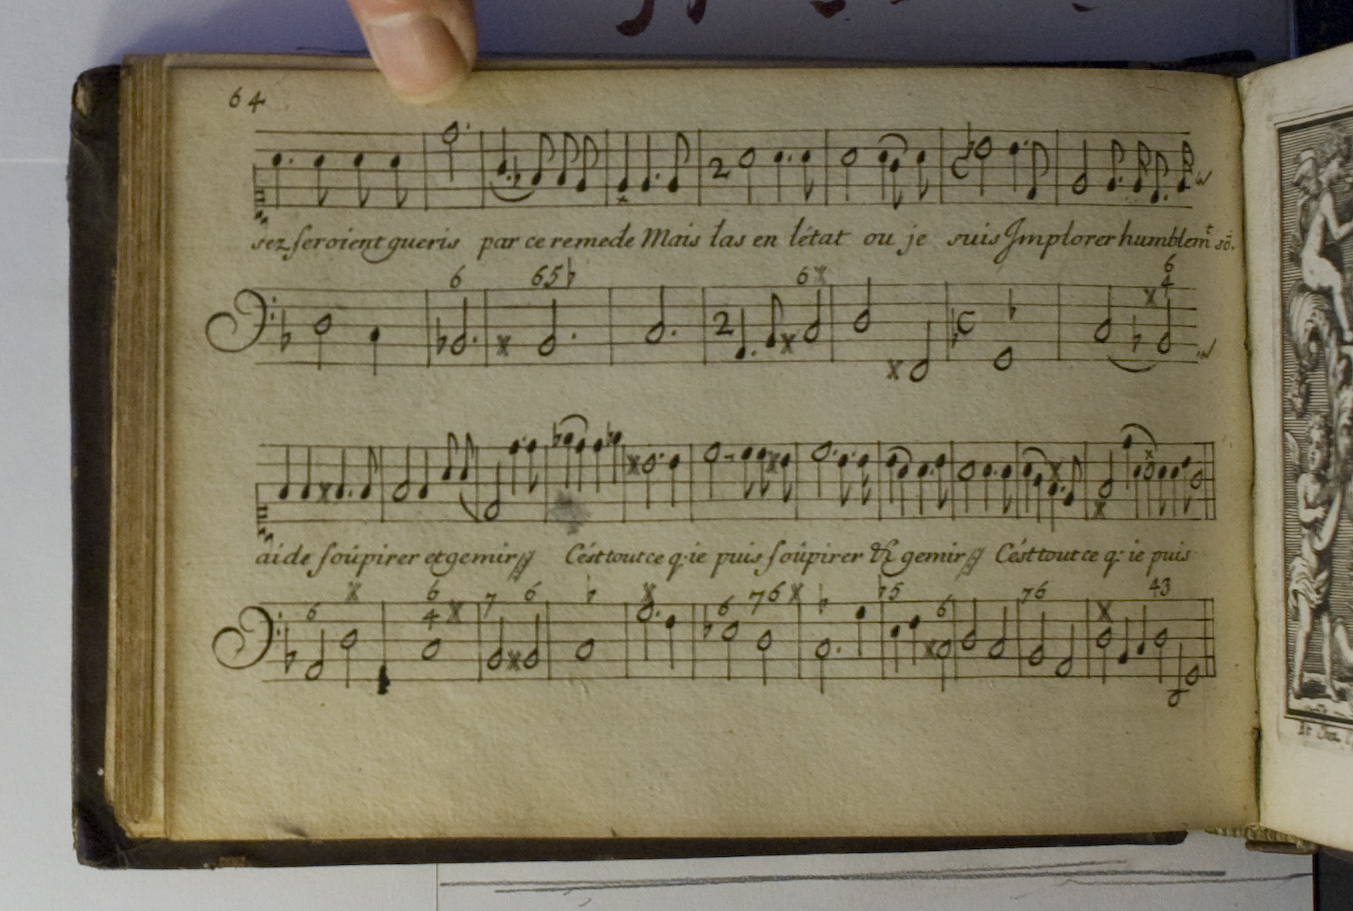 64
sez seroient gueris par ce remede Mais las en l'état ou je suis Implorer humblem.t sõ.
6 6 5 ♭ 6 x 6
4
x
aide soûpirer et gemir C'ést tout ce q. ie puis soûpirer & gemir C'ést tout ce q. ie puis
6 x 6 4 x 7 6 ♭ x 6 7 6 x ♭ ♭5 6 7 6 x 4 3